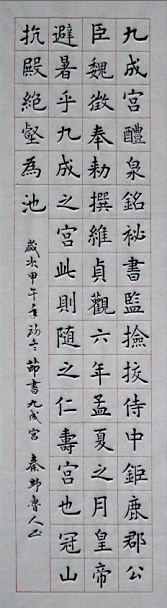 九成宮醴泉銘祕書監撿挍侍中鉅鹿郡公
臣魏徵奉勅撰維貞觀六年孟夏之月皇帝
避暑乎九成之宮此則隨之仁壽宮也冠山
抗殿絕壑為池
歲次甲午年初冬節書九成宮 秦野魯人书